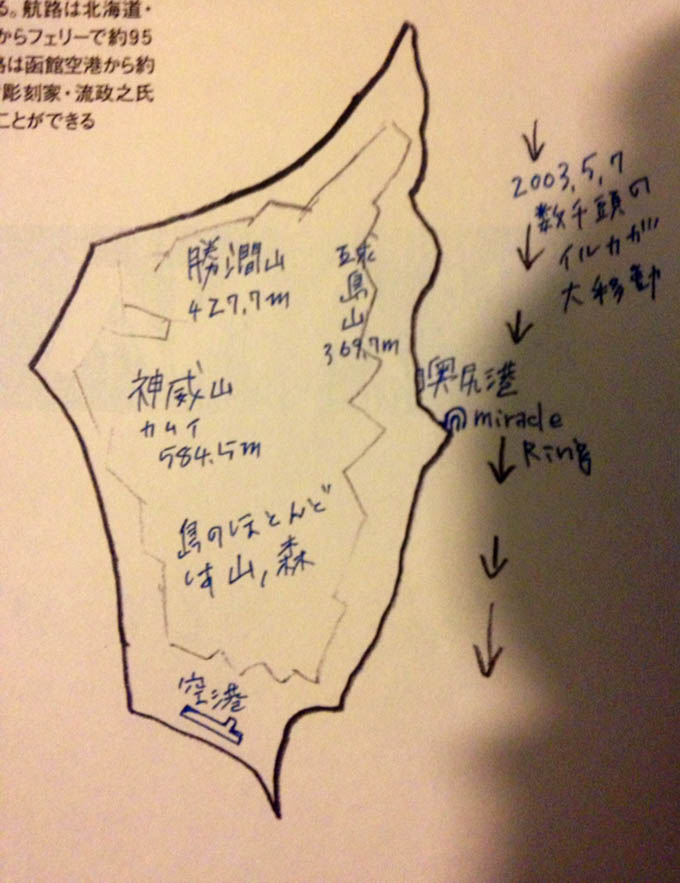 る。航路は北海道・
からフェリーで約95
路は函館空港から約
彫刻家・流政之氏
ことができる
2003,5,7
数千頭の
イルカガ
大移動
勝澗山
427.7m
球
島
山
369.7m
神威山
カムイ
584.5m
奥尻港
miracle
Ring
島のほとんど
は山,森
空港